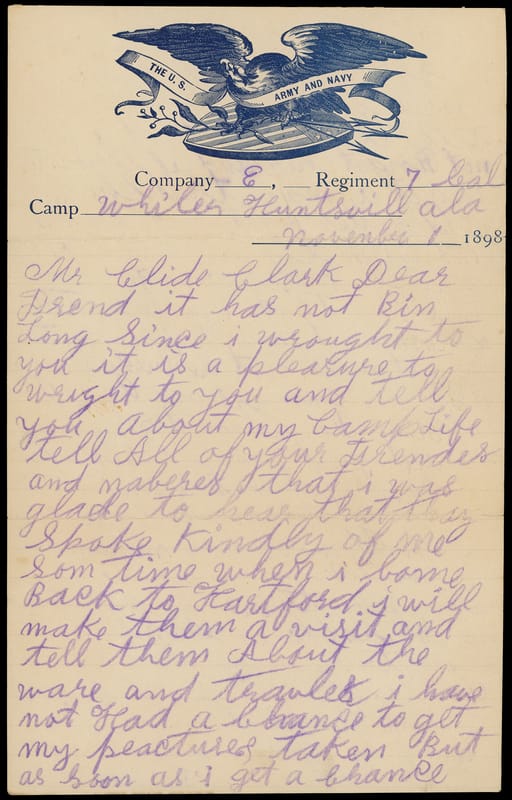 THE U. S.
ARMY AND NAVY
Company E, Regiment 7 Cal
Camp Whiler Huntsvill ala
November 1 1898
Mr Clide Clark Dear
Frend it has not Bin
Long Since i wrought to
you it is a plearure to
wright to you and tell
you about my Camp Life
tell All of your Frendes
and naberes that i was
glade to hear that thay
Spoke Kindly of me
Som time when i Come
Back to Hartford i will
make them a visit and
tell them About the
ware and travles i have
not Had a Chance to get
my peactures taken But
as Soon as i get a Chance